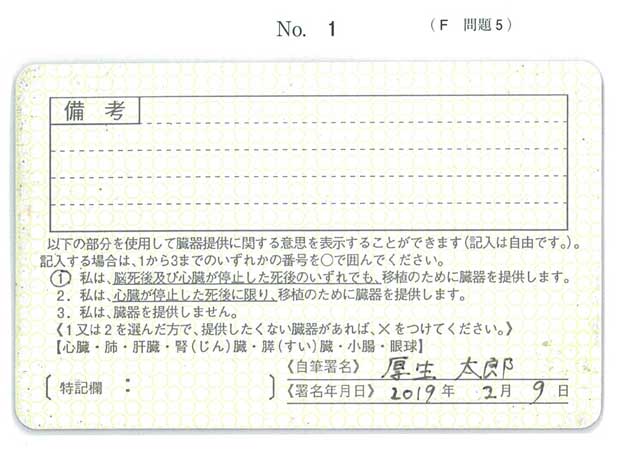 No. 1 （F 問題5）
備考
以下の部分を使用して臓器提供に関する意思を表示することができます(記入は自由です。)。
記入する場合は、1から3までのいずれかの番号を〇で囲んでください。
① 私は、脳死後及び心臓が停止した死後のいずれでも、移植のために臓器を提供します。
2. 私は、心臓が停止した死後に限り、移植のために臓器を提供します。
3. 私は、臓器を提供しません。
《1又は2を選んだ方で、提供したくない臓器があれば、×をつけてください。》
【心臓・肺・肝臓・腎(じん)臓・膵(すい)臓・小腸・眼球】
《自筆署名》 厚生 太郎
〔特記欄 : 〕 《署名年月日》 2019年 2月 9日